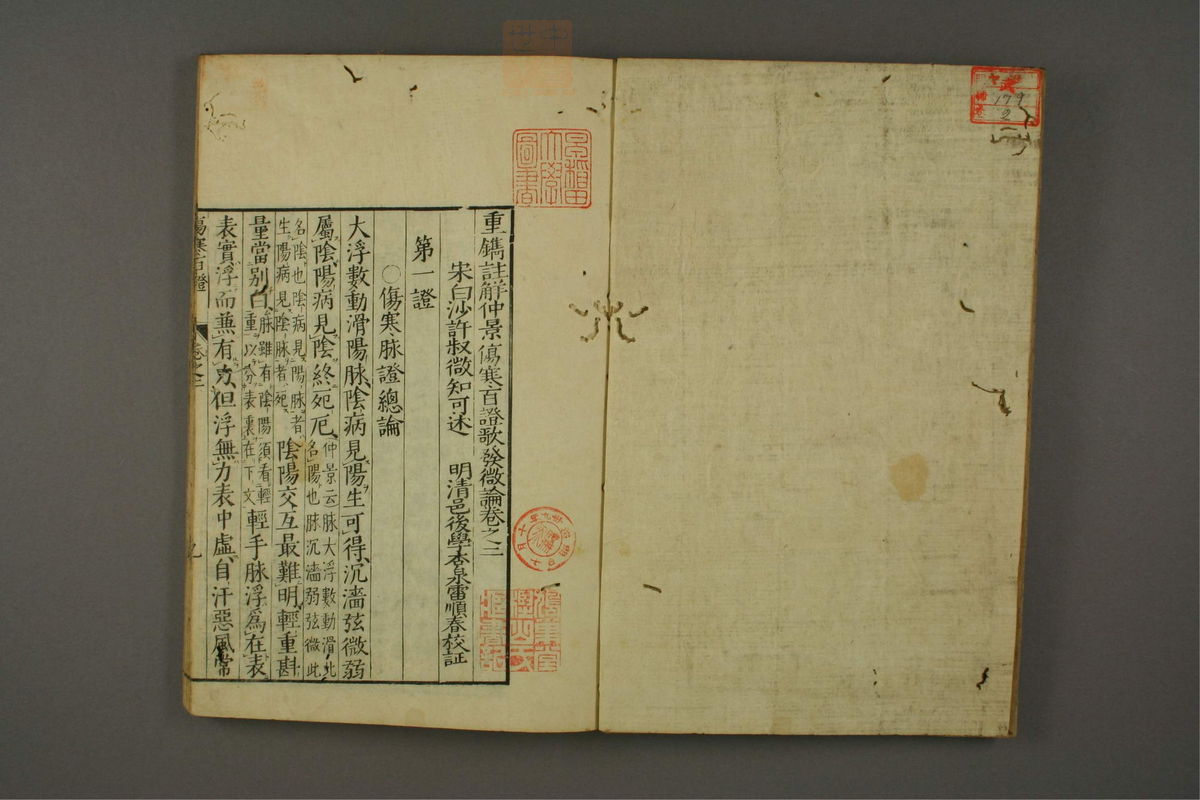 重鐫註解仲景傷寒百證歌發微論卷之二
宋白沙許叔微知可述　明清邑後學杏泉雷順春校証
第一證
○傷寒脉證總論
大浮數動滑陽脉陰病見陽生可得沉濇弦微弱
屬陰陽病見陰終死厄仲景云脉大浮數動滑此名陽也脉沉濇弱弦微此
名陰也陰病見陽脉者生陽病見陰脉者死陰陽交互最難明輕重斟
量當別白脉雖有陰陽須看輕重以分表裏在下文輕手脉浮為在表
表實浮而兼有力但浮無力表中虛自汗惡風常
傷寒百證
卷之二
早稲田大學圖書
179
2